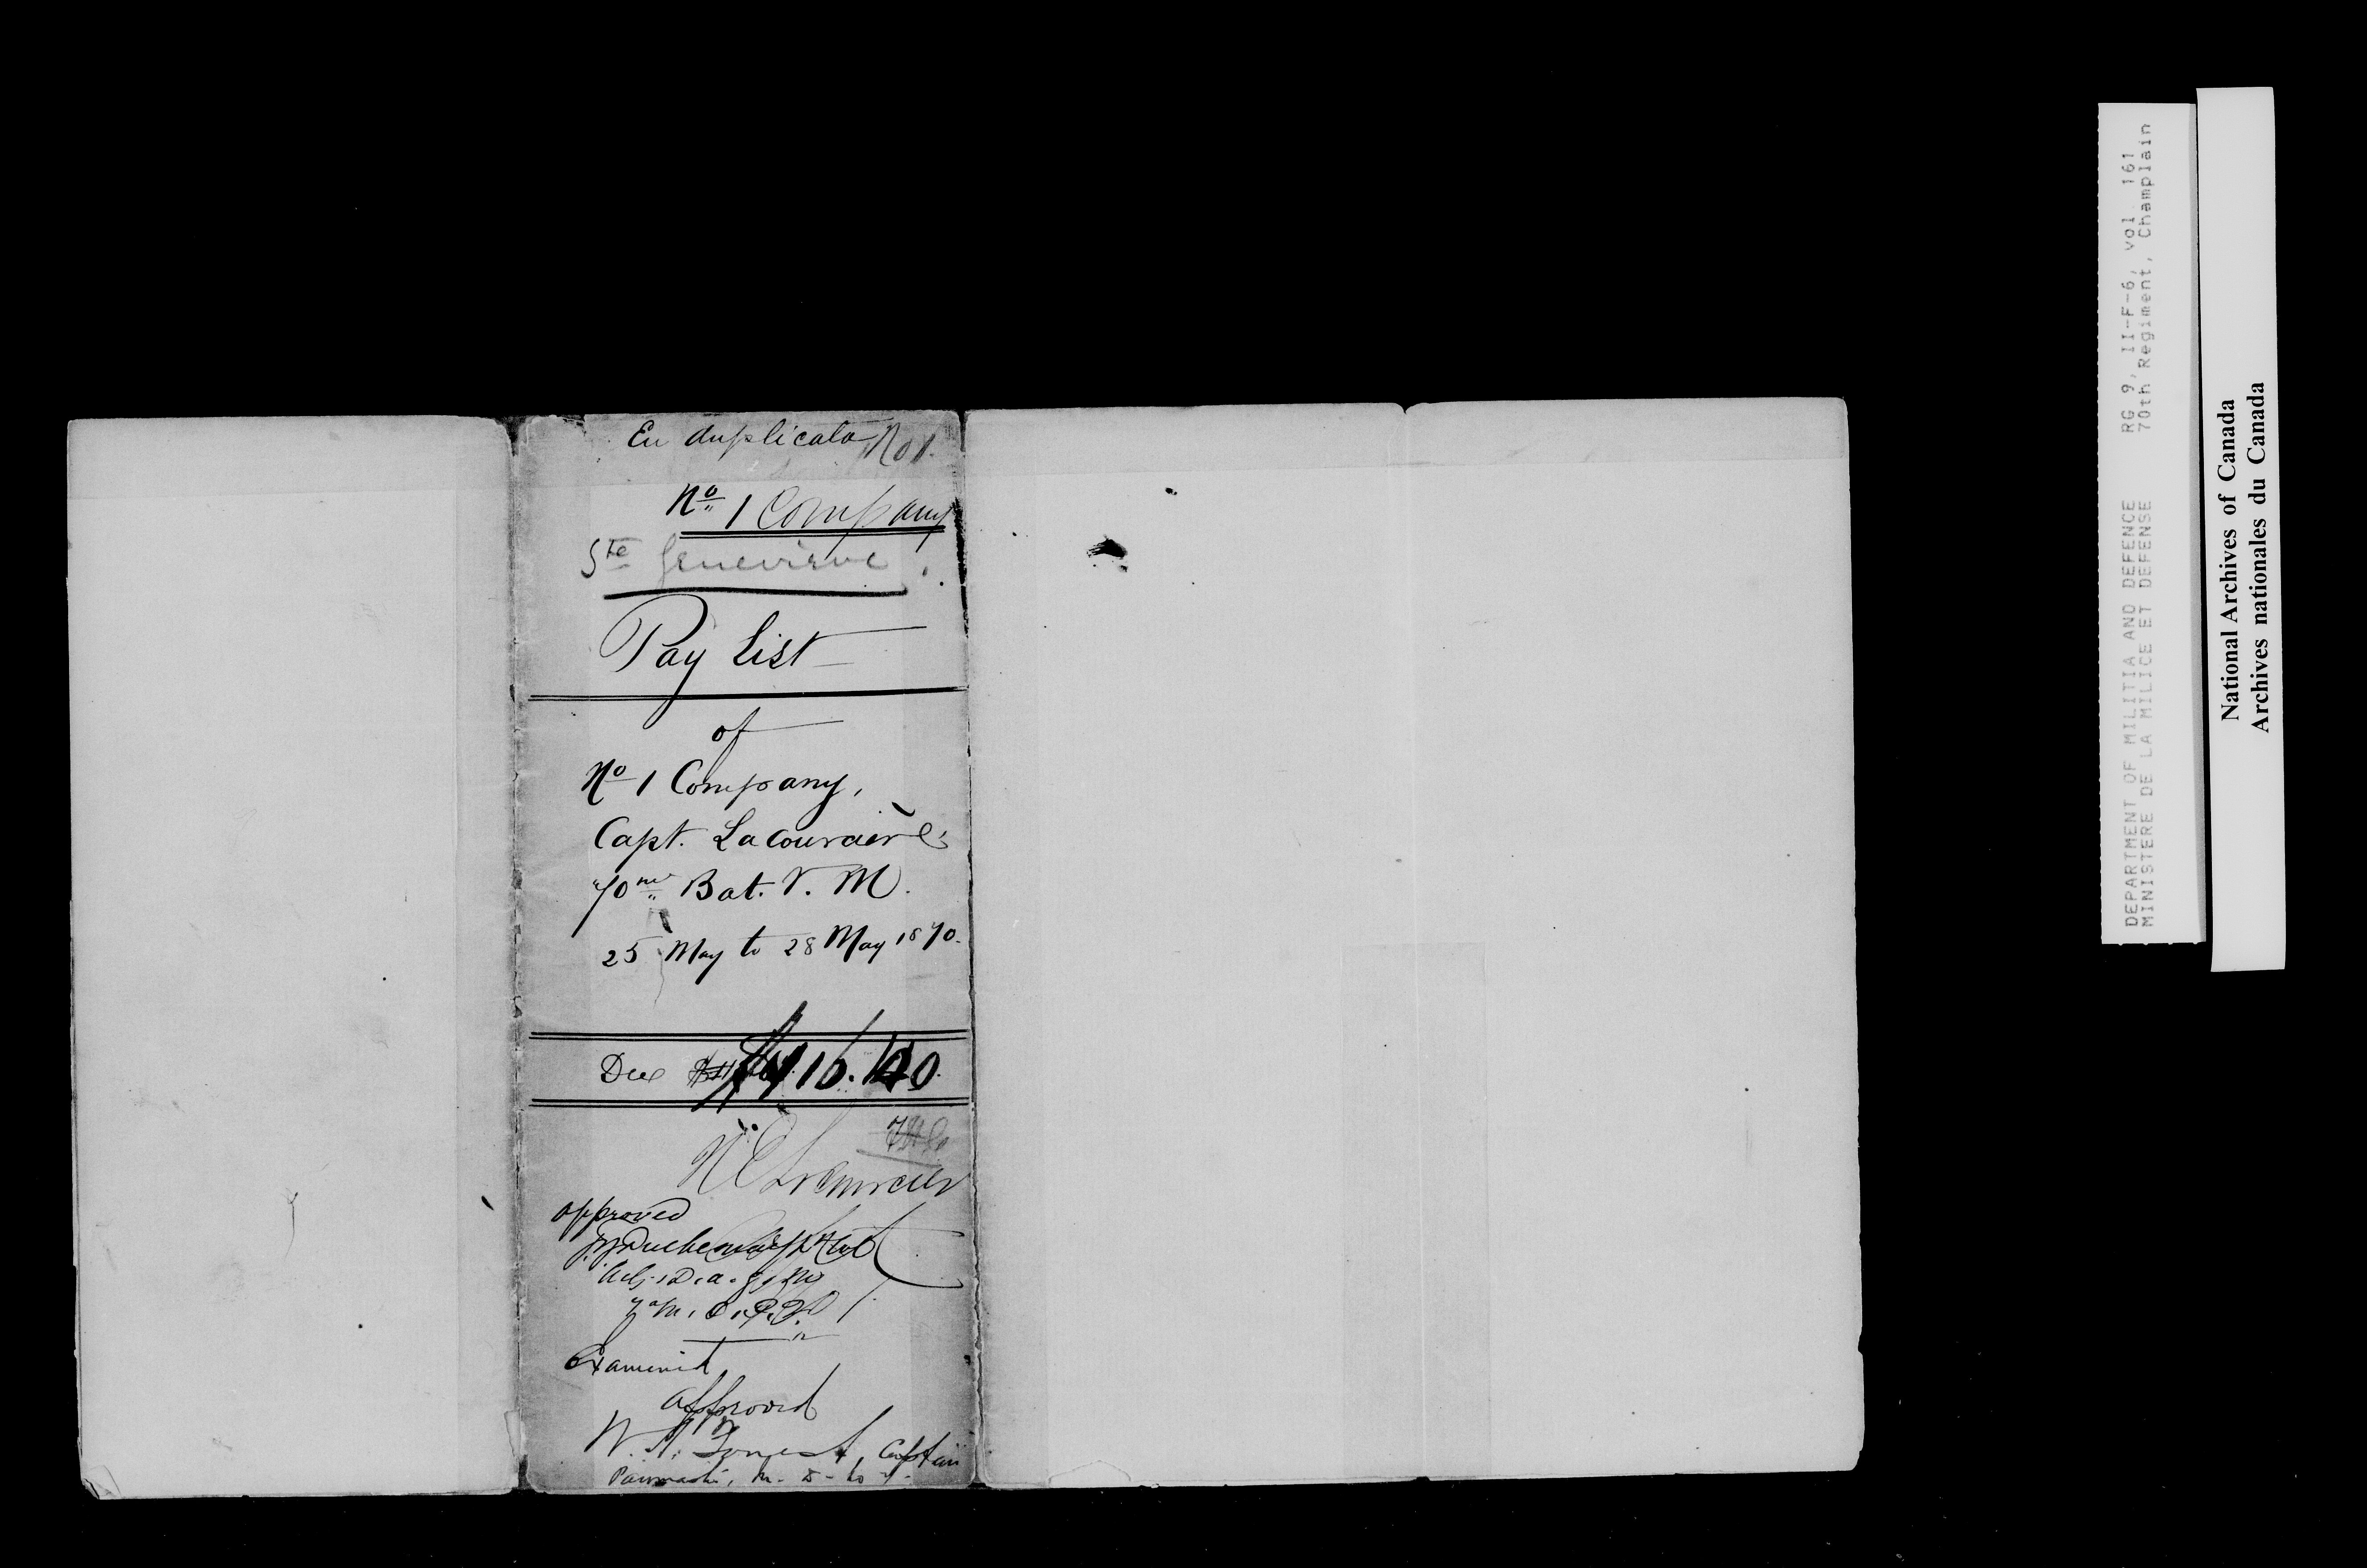 En duplicata No 1.
No 1 Company
Ste Geneviève.
Pay List
of
No 1 Company,
Capt. Lacourcière
70me Bat. V. M.
25 May to 28 May 1870.
Due
approved
Examined
approved
Captain
Paymaster, M. D. No 7.
DEPARTMENT OF MILITIA AND DEFENCE RG 9, II-F-6, vol 161
MINISTERE DE LA MILICE ET DEFENSE 70th Regiment, Champlain
National Archives of Canada
Archives nationales du Canada